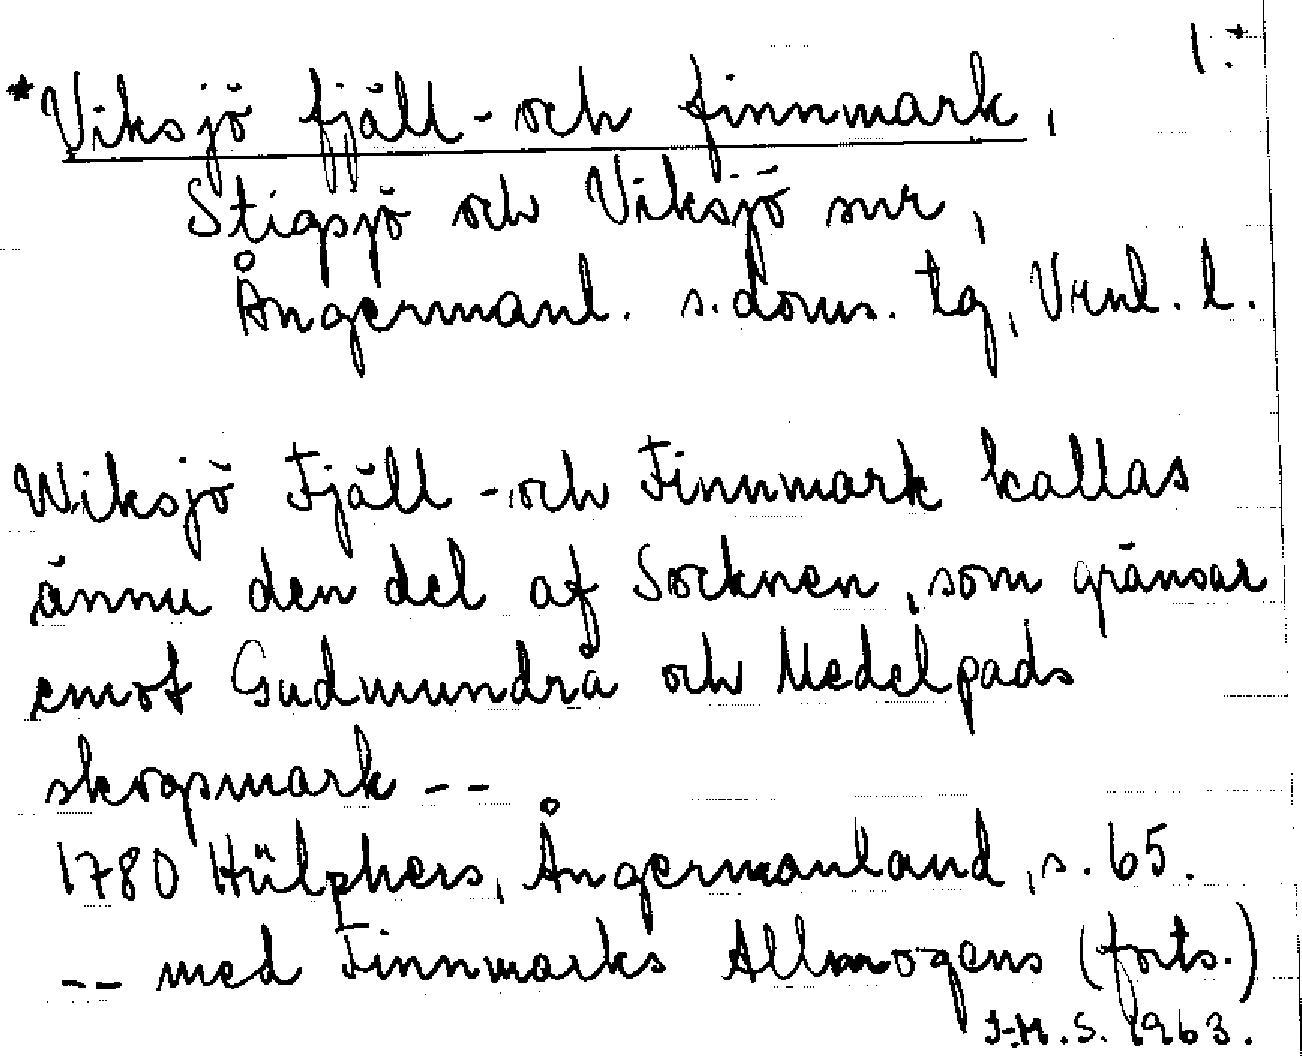 1.*
*Viksjö fjäll- och finnmark,
Stigsjö och Viksjö snr,
Ångermanl. s. doms. tg, Vrnl. l.
Wiksjö Fjäll- och Finnmark kallas
ännu den del af Socknen, som gränsar
emot Gudmundrå och Medelpads
skogsmark --
1780 Hülphers, Ångermanland, s. 65.
-- med Finnmarks Allmogens (forts.)
J-M. S. 1963.